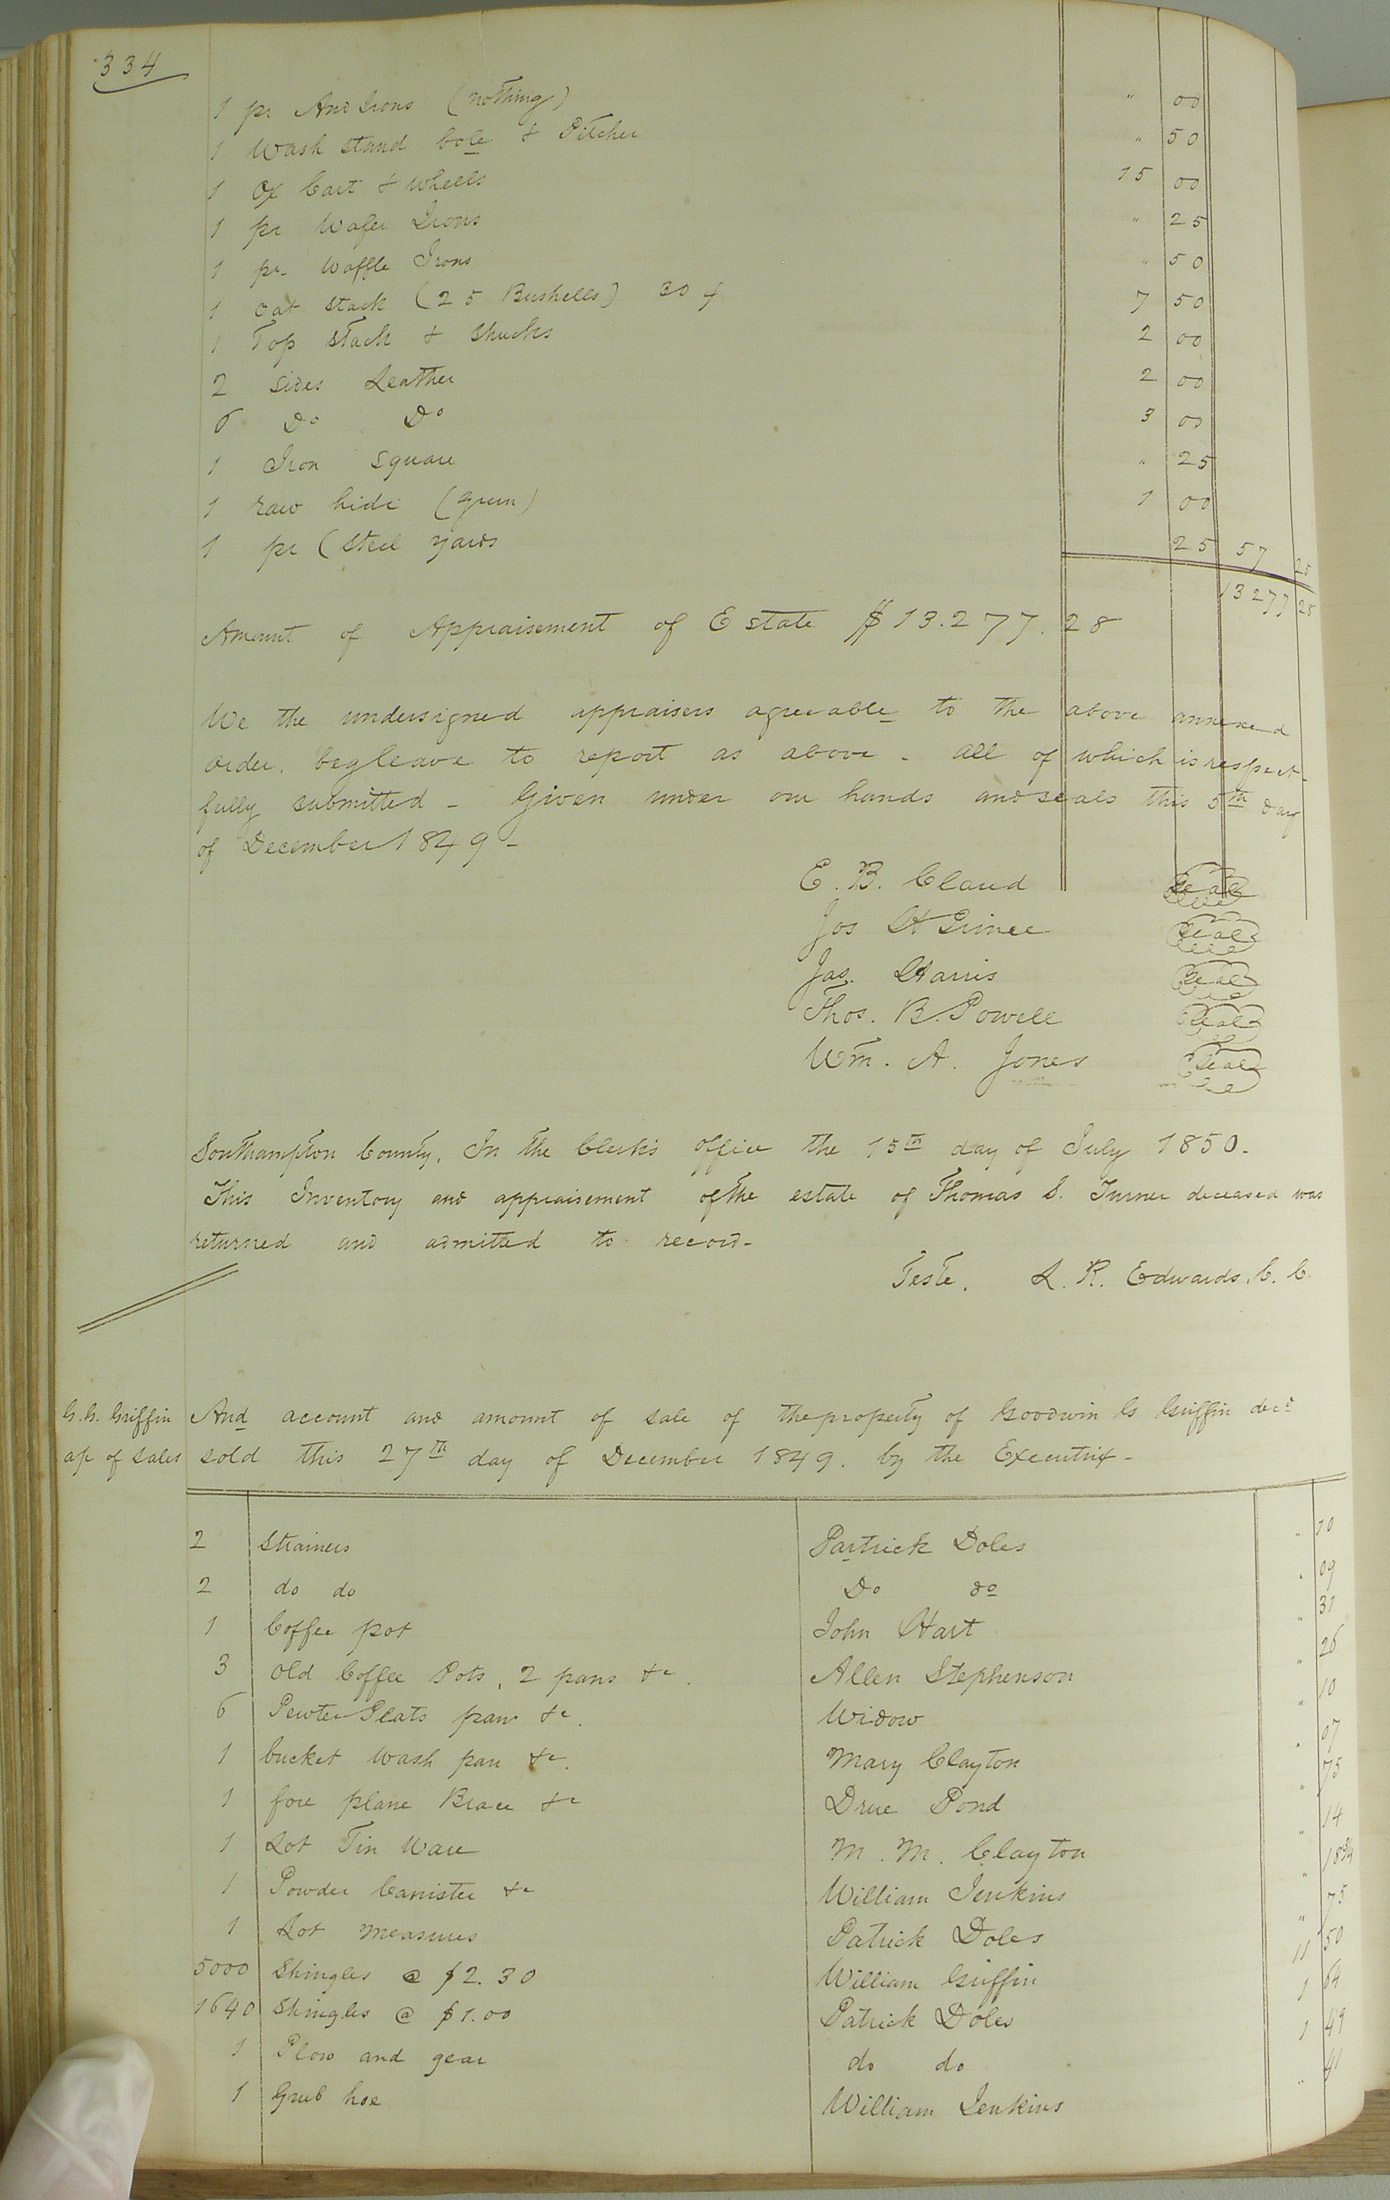 334
1 pr And Irons (nothing) " 00
1 Wash stand bole & Pitcher " 50
1 Ox Cart & wheels 15 00
1 pr Wafer Irons " 25
1 pr. Waffle Irons " 50
1 oat stack (25 Bushells) 30 ¢ 7 50
1 Top stack & shucks 2 00
2 sides Leather 2 00
6 Do Do 3 00
1 Iron square " 25
1 raw hide (green) 1 00
1 pr (Steel yards 25 57 25
13277 28
Amount of Appraisement of Estate $13.277.28
We the undersigned appraisers agreeable to the above annexed
order. beg leave to report as above. all of which is respect-
fully submitted - Given under our hands and seals this 5th day
of December 1849 -
E. B. Claud Seal
Jos H Prince Seal
Jas. Harris Seal
Thos. B. Powell Seal
Wm. A. Jones Seal
Southampton County, In the Clerk's office the 15th day of July 1850.
This Inventory and appraisement of the estate of Thomas S. Turner deceased was
returned and admitted to record-
Teste, L. R. Edwards, C. C.
G. G. Griffin And account and amount of sale of the property of Goodwin G Griffin decd
a/c of sales sold this 27th day of December 1849. by the Executrix -
2 Strainers Partrick Doles " 10
2 do do Do do " 09
1 Coffee pot John Hart " 31
3 old Coffee Pots, 2 pans &c. Allen Stephenson " 26
6 Pewter Plats pan &c. Widow " 10
1 bucket Wash pan &c. Mary Clayton " 07
1 fore plane Brace &c Drue Pond " 75
1 Lot Tin Ware M. M. Clayton " 14
1 Powder Canister &c William Jenkins " 18 3/4
1 Lot measures Patrick Doles " 75
5000 Shingles @ $2.30 William Griffin 11 50
1640 Shingles @ $1.00 Patrick Doles 1 64
1 Plow and gear do do 1 49
1 Grub hoe William Jenkins " 41